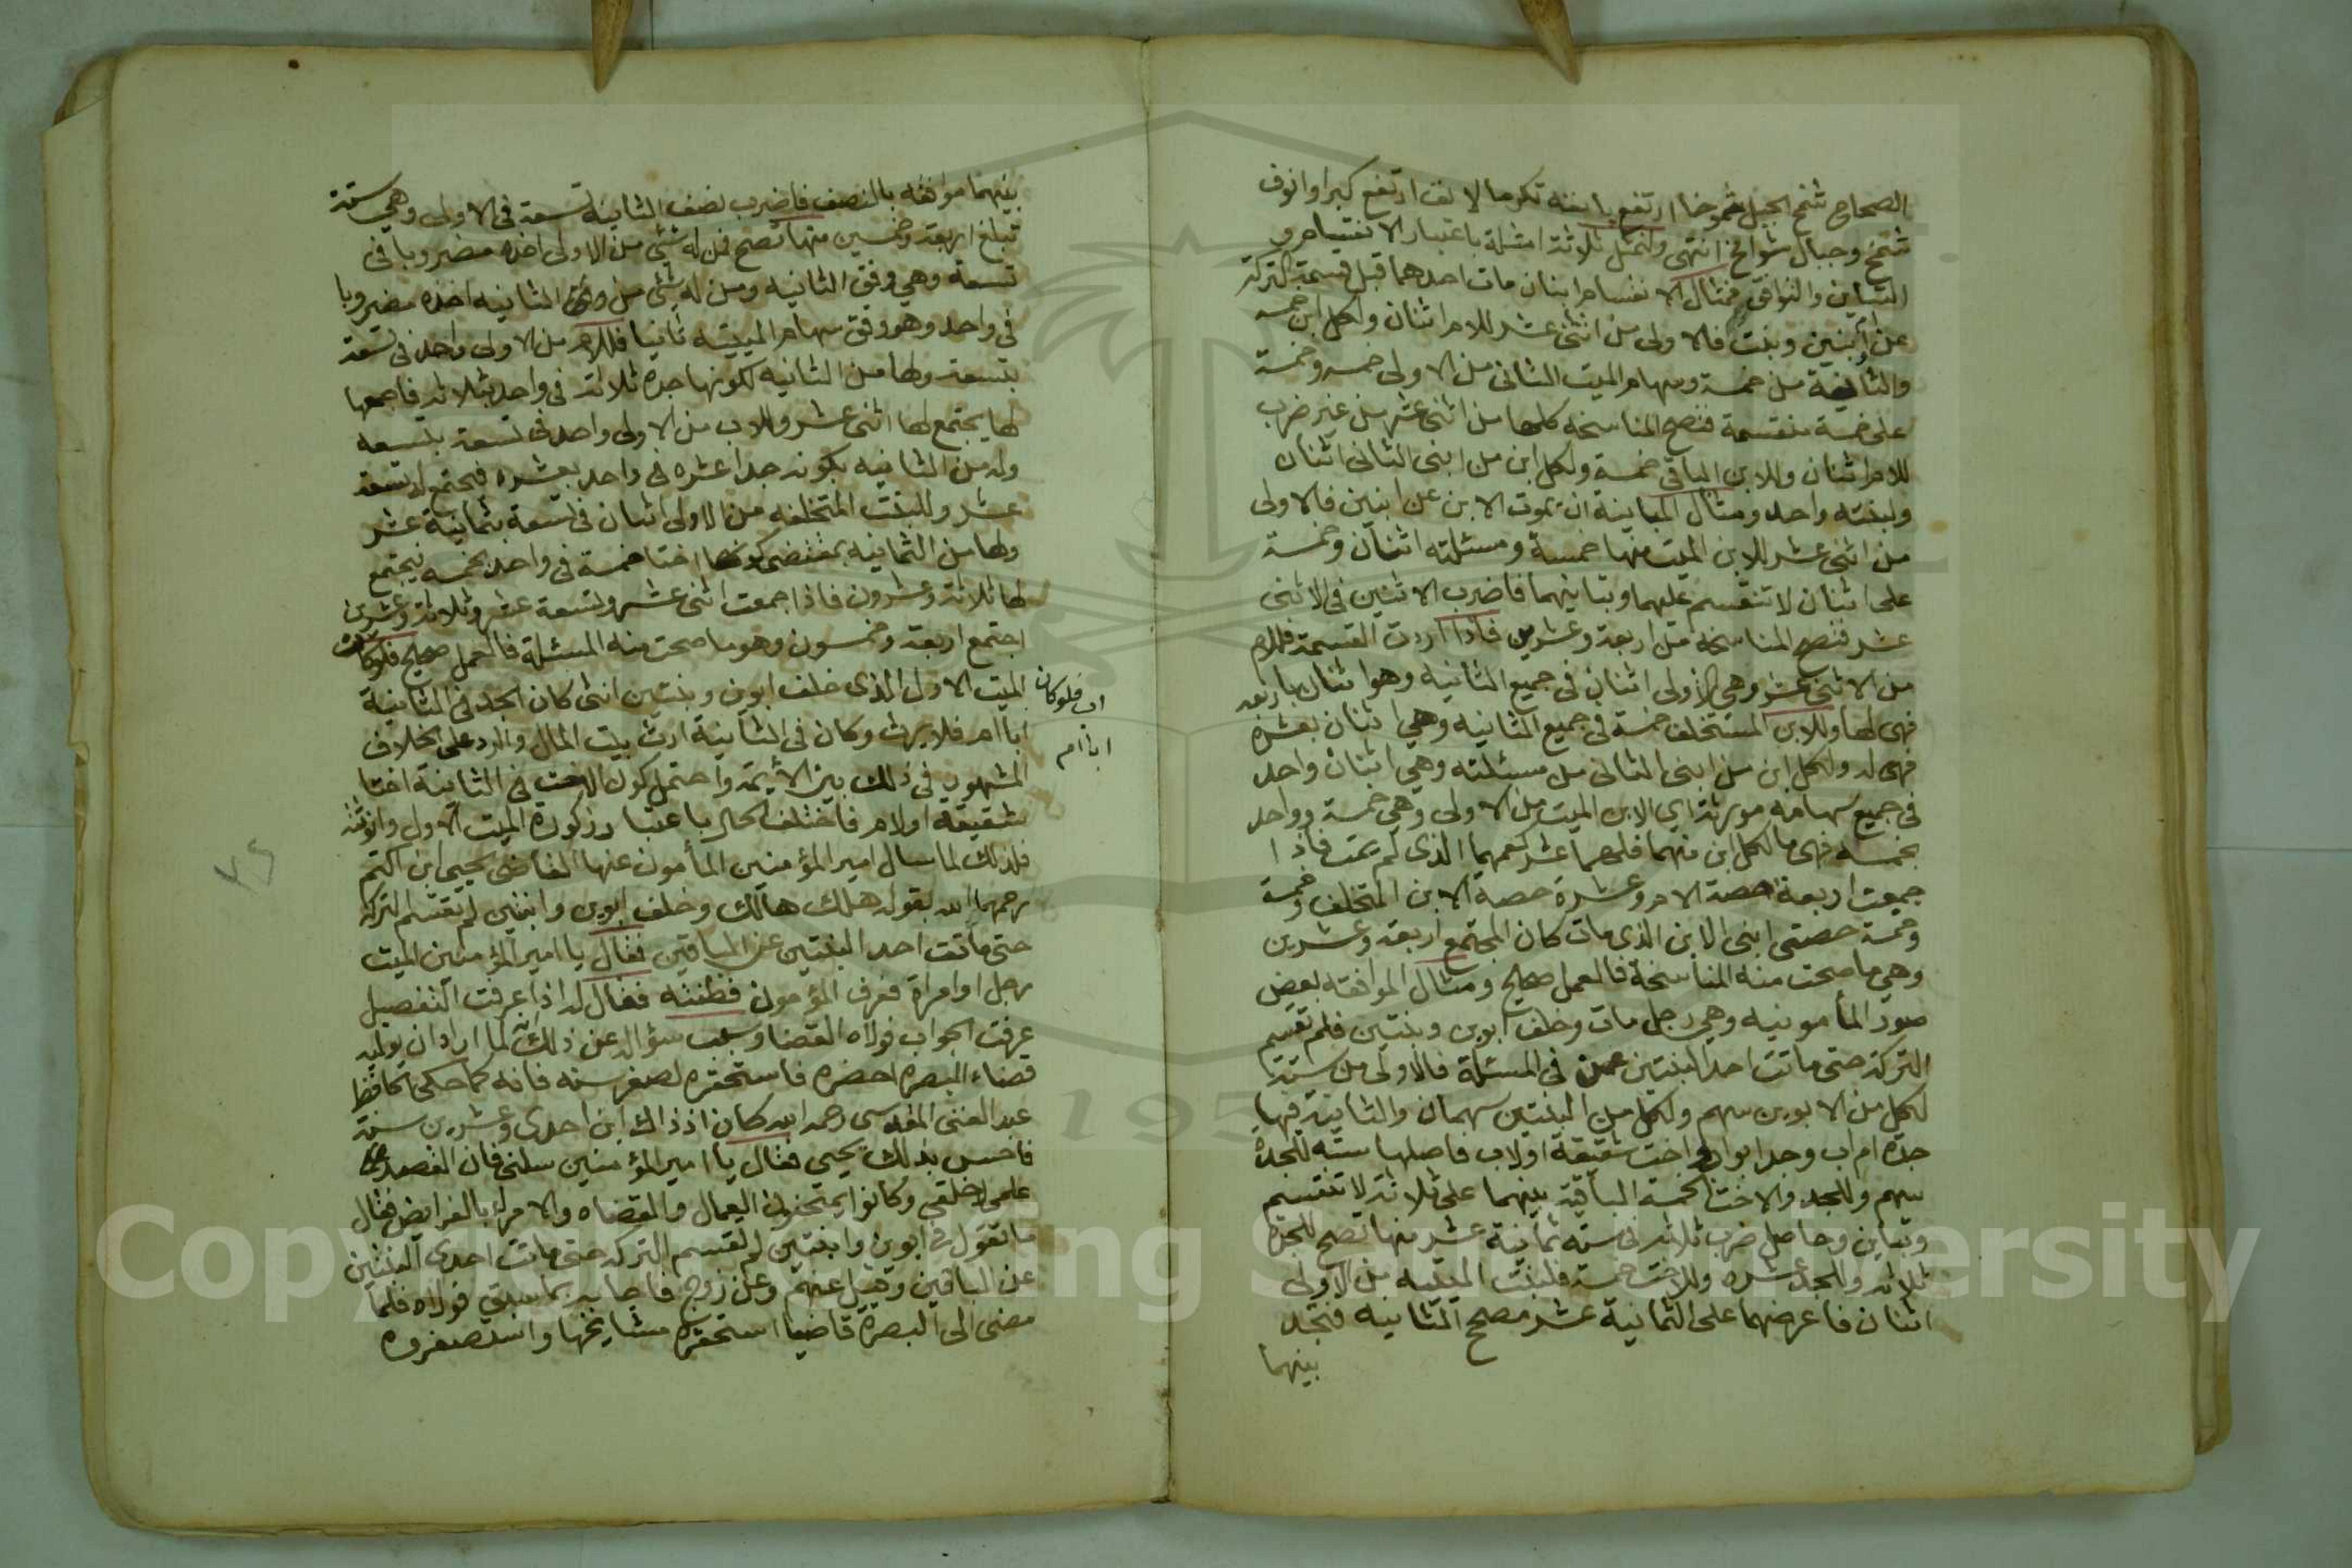 الصحاح شمخ الجبل شموخا ارتفع بانفه تكرما لانف ارتفع كبرا وانوف
شمخ وجبال شوامخ انتهى ولنمثل ثلاثة امثلة باعتبار الانقسام و
التباين والتوافق فمثال الانقسام ابنان مات احدهما قبل قسمة التركة
عن ابنين وبنت فالاولى من اثنى عشر للام اثنان ولكل ابن خمسة
والثانية من خمسة وسهام الميت الثانى من الاولى خمسة وخمسة
على خمسة منقسمة فتصح المناسخه كلها من اثنى عشر من غير ضرب
للام اثنان وللابن الباقى خمسة ولكل ابن من ابنى الثانى اثنان
ولبنته واحد ومثال المباينة ان يموت الابن عن ابنين فالاولى
من اثنى عشر للابن الميت منها خمسة ومسئلته اثنان وخمسة
على اثنان لا تنقسم عليهما وتباينهما فاضرب الاثنين فى الاثنى
عشر فتصح المناسخه من اربعة وعشرين فاذا اردت القسمة فللام
من الاثنى عشر وهى الاولى اثنان فى جميع الثانيه وهو اثنان باربعه
فهى لها وللابن المستخلف خمسة فى جميع الثانيه وهى اثنان بعشرة
فهى له ولكل ابن من ابنى الثانى من مسئلته وهى اثنان واحد
فى جميع سهام مورثه اى الابن الميت من الاولى وهى خمسة وواحد
بخمسة فهى ما لكل ابن منهما فلهما عشر كعمهما الذى لم يمت فاذا
جمعت اربعة حصة الام وعشرة حصة الابن المتخلف وخمسة
وخمسة حصتى ابنى الابن الذى مات كان المجتمع اربعة وعشرين
وهى ما صحت منه المناسخة فالعمل صحيح ومثال الموافقه بعض
صور المأمونيه وهى رجل مات وخلف ابوين وبنتين فلم تقسم
التركة حتى ماتت احد البنتين عمن فى المسئلة فالاولى من ستة
لكل من الابوين سهم ولكل من البنتين سهمان والثانية فيها
جدة ام اب وجد ابو اب واخت شقيقة او لاب فاصلها سته للجدة
سهم وللجد والاخت الخمسة الباقية بينهما على ثلاثة لا تنقسم
وتباين وحاصل ضرب ثلاثه فى سته ثمانية عشر منها تصح للجدة
ثلاثه وللجد عشره وللاخت خمسة فلبنت الميتة من الاولى
اثنان فاعرضهما على الثمانية عشر مصحح الثانيه فتجد
بينهما
بينهما موافقه بالنصف فاضرب نصف الثانيه تسعة فى الاولى وهى ستة
تبلغ اربعة وخمسين منها تصح فمن له شئ من الاولى اخذه مضروبا فى
تسعة وهى وفق الثانيه ومن له شئ من الثانيه اخذه مضروبا
فى واحد وهو وفق سهام الميتة ثانيا فللام من الاولى واحد فى تسعة
بتسعة ولها من الثانيه لكونها جدة ثلاثة فى واحد بثلاثه فاجمعها
لها يجتمع لها اثنى عشر وللاب من الاولى واحد فى تسعة بتسعه
وله من الثانيه بكونه جدا عشره فى واحد بعشره فيجتمع له تسعة
عشر وللبنت المتخلفه من الاولى اثنان فى تسعة بثمانية عشر
ولها من الثانيه بمقتضى كونها اختا خمسة فى واحد بخمسه يجتمع
لها ثلاثة وعشرون فاذا جمعت اثنى عشر وتسعة عشر وثلاثة وعشرين
اجتمع اربعة وخمسون وهو ما صحت منه المسئلة فالعمل صحيح فلو كان
الميت الاول الذى خلف ابوين وبنتين انثى كان الجد فى الثانية
اب فلوكان
ابا ام فلا يرث وكان فى الثانية ارث بيت المال والرد على الخلاف
ابا ام
المشهور فى ذلك بين الأيمة واحتمل كون الاخت فى الثانية اختا
شقيقة او لام فاختلف الحال باعتبار ذكورة الميت الاول وانوثته
فلذلك لما سال امير المؤمنين المأمون عنها القاضى يحيى ابن اكثم
رحمهما الله بقوله هلك هالك وخلف ابوين وابنتين لم تقتسم التركة
حتى ماتت احد البنتين عن الباقين فقال يا امير المؤمنين الميت
رجل او امراة فعرف المؤمون فطنته فقال له اذا عرفت التفصيل
عرفت الجواب فولاه القضا وسبب سؤاله عن ذلك لما اراد ان يوليه
قضاء البصره احضره فاستحقره لصغر سنه فانه كما حكى الحافظ
عبد الغنى المقدسى رحمه الله كان اذ ذاك ابن احدى وعشرين سنة
فاحس بذلك يحيى فقال يا امير المؤمنين سلنى فان القصد
علمى لا خلقى وكانوا يمتحنون العمال والقضاه والامراء بالفرايض فقال
ما تقول فى ابوين وابنتين لم تقسم التركه حتى ماتت احدى البنتين
عن الباقين وقيل عنهم وعن زوج فاجابه بما سبق فولاه فلما
مضى الى البصرة قاضيا استحقره مشايخها واستصغروه
٧٩
Copyright © King Saud University
195